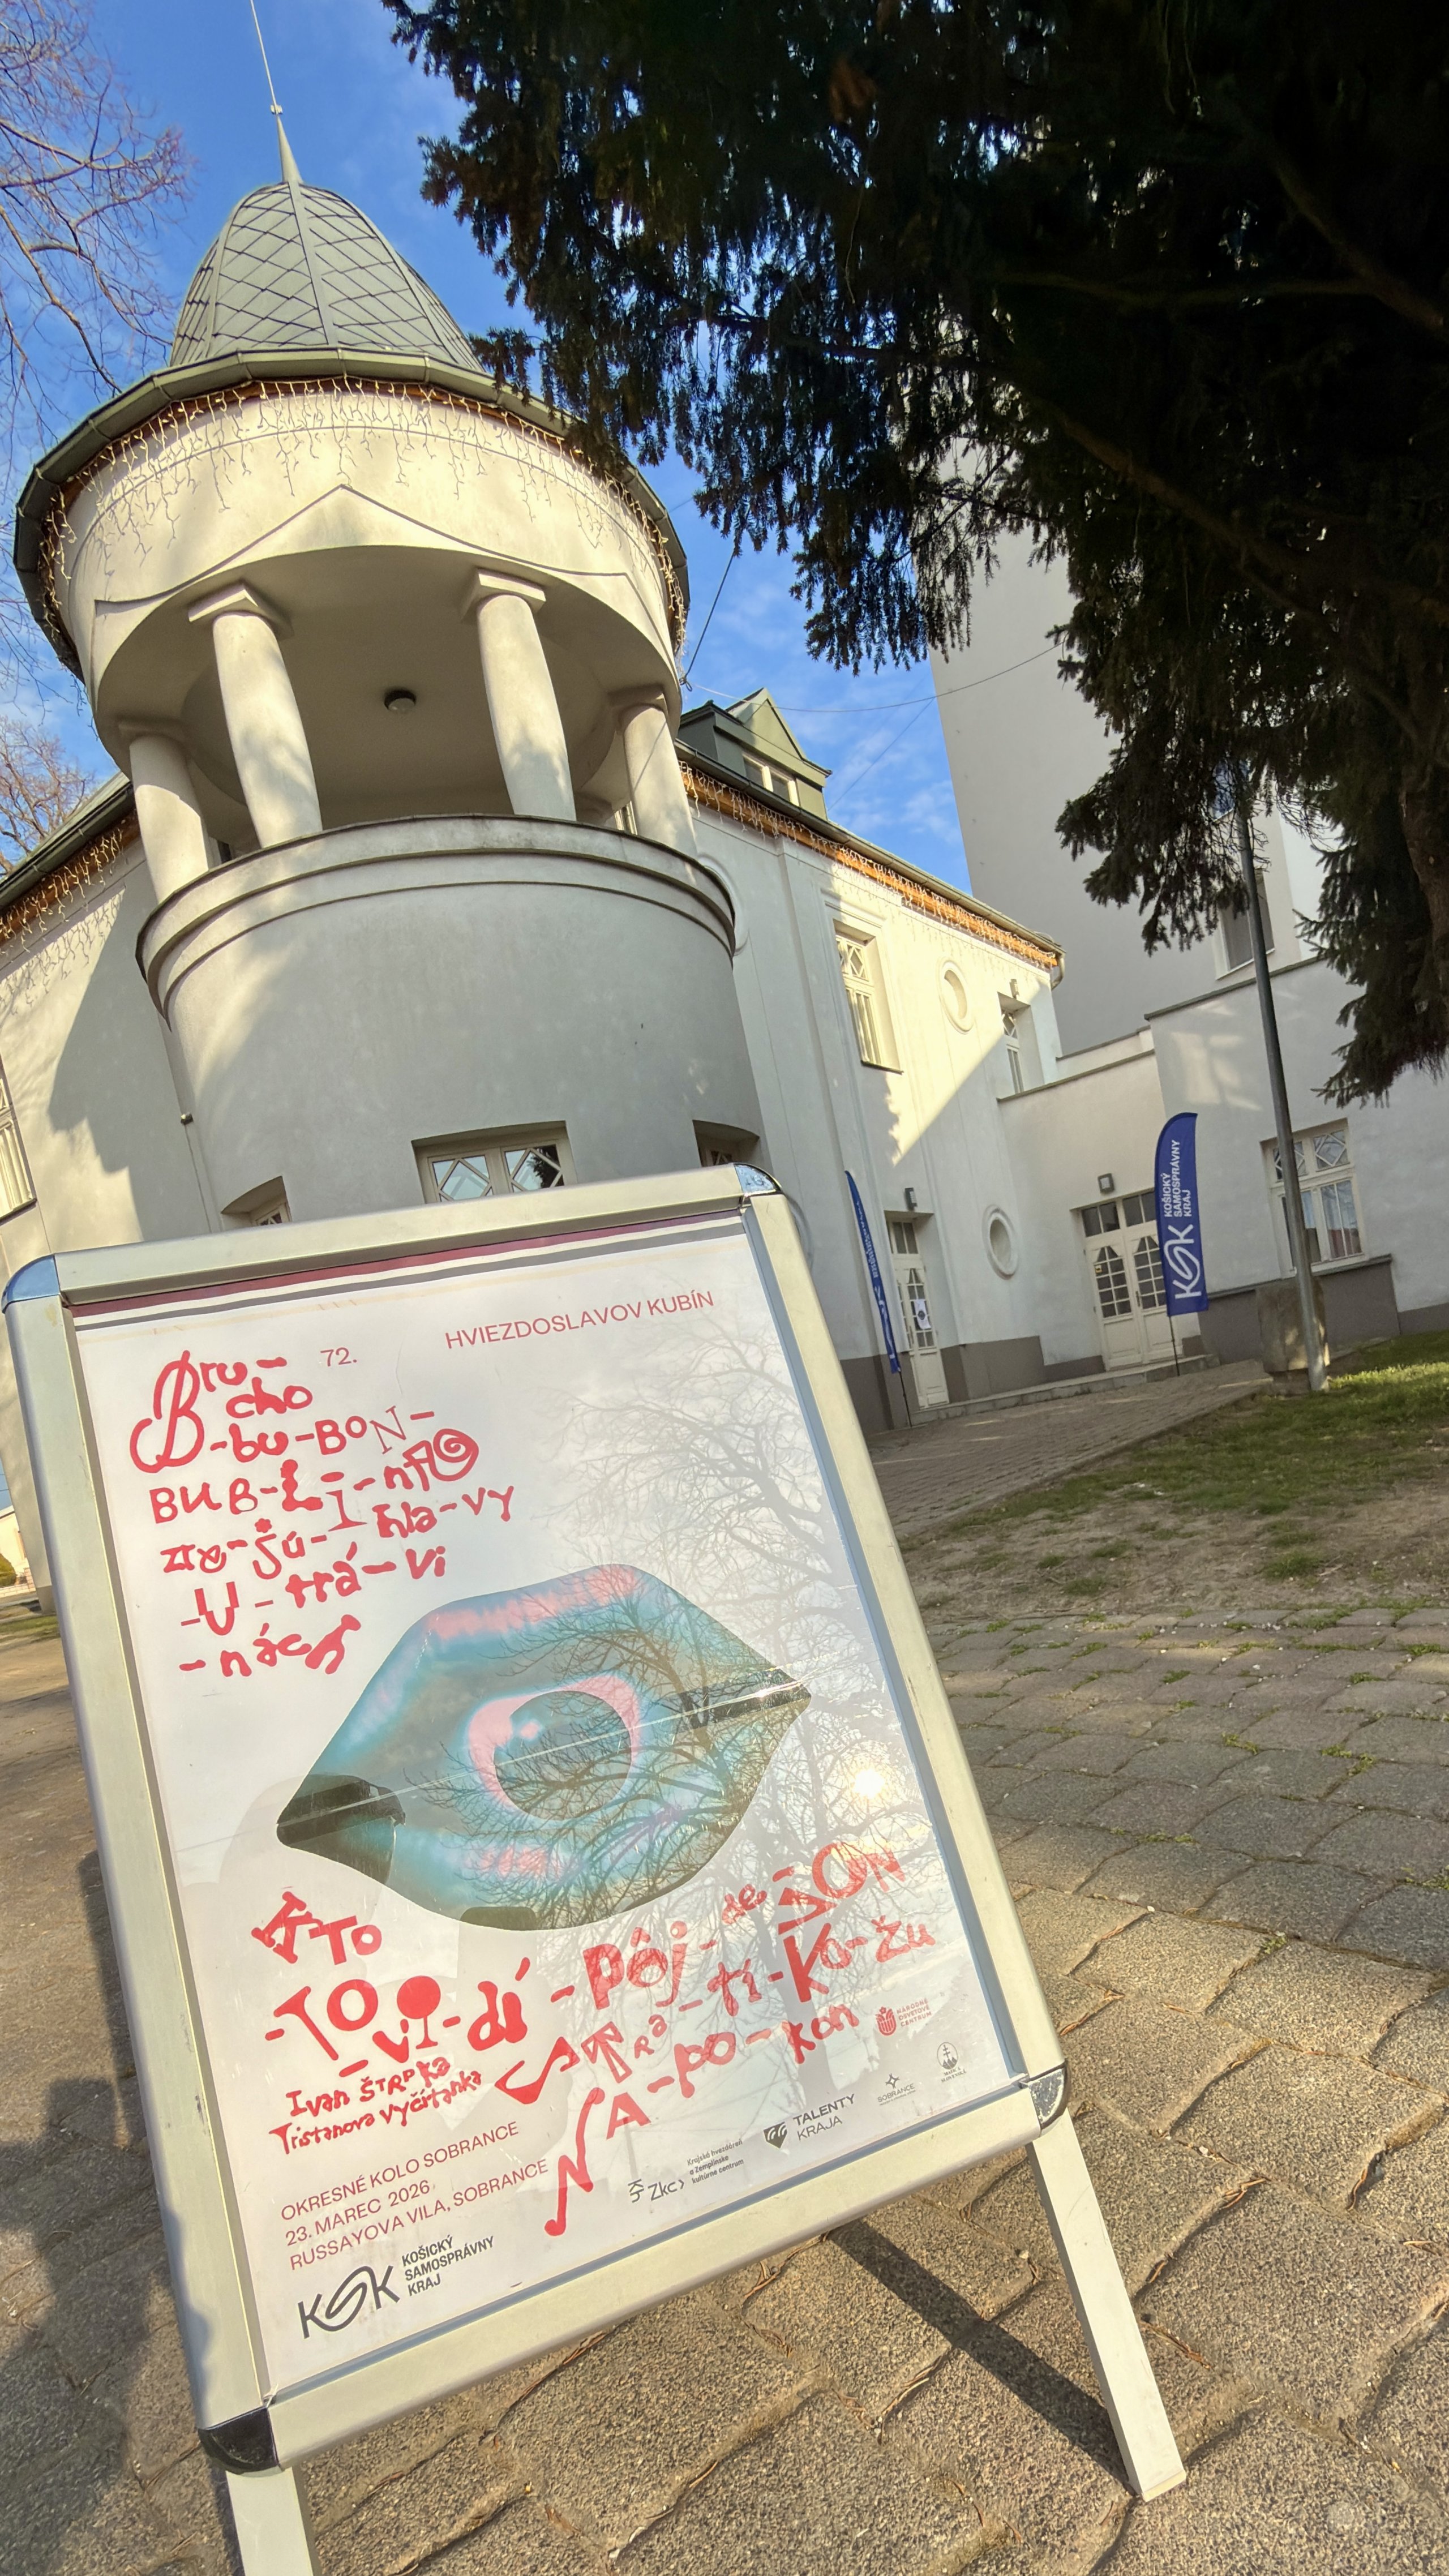 72.
HVIEZDOSLAVOV KUBÍN
Bru-
cho
B-bu-BON-
BUB-LI-nfo
-U-trá-vi
-nách
KTO
-TO
-vi-dí-pôj-de
STRA-tí-Ko-žu
NA-po-kon
Ivan ŠTRPKa
Tristanova vyčítanka
OKRESNÉ KOLO SOBRANCE
23. MAREC 2026
RUSSAYOVA VILA, SOBRANCE
KSK KOŠICKÝ
SAMOSPRÁVNY
KRAJ
Zkc
Krajská hvezdáreň
a Zemplínske
kultúrne centrum
TALENTY
KRAJA
SOBRANCE
NÁRODNÉ
OSVETOVÉ
CENTRUM
KSK KOŠICKÝ
SAMOSPRÁVNY
KRAJ